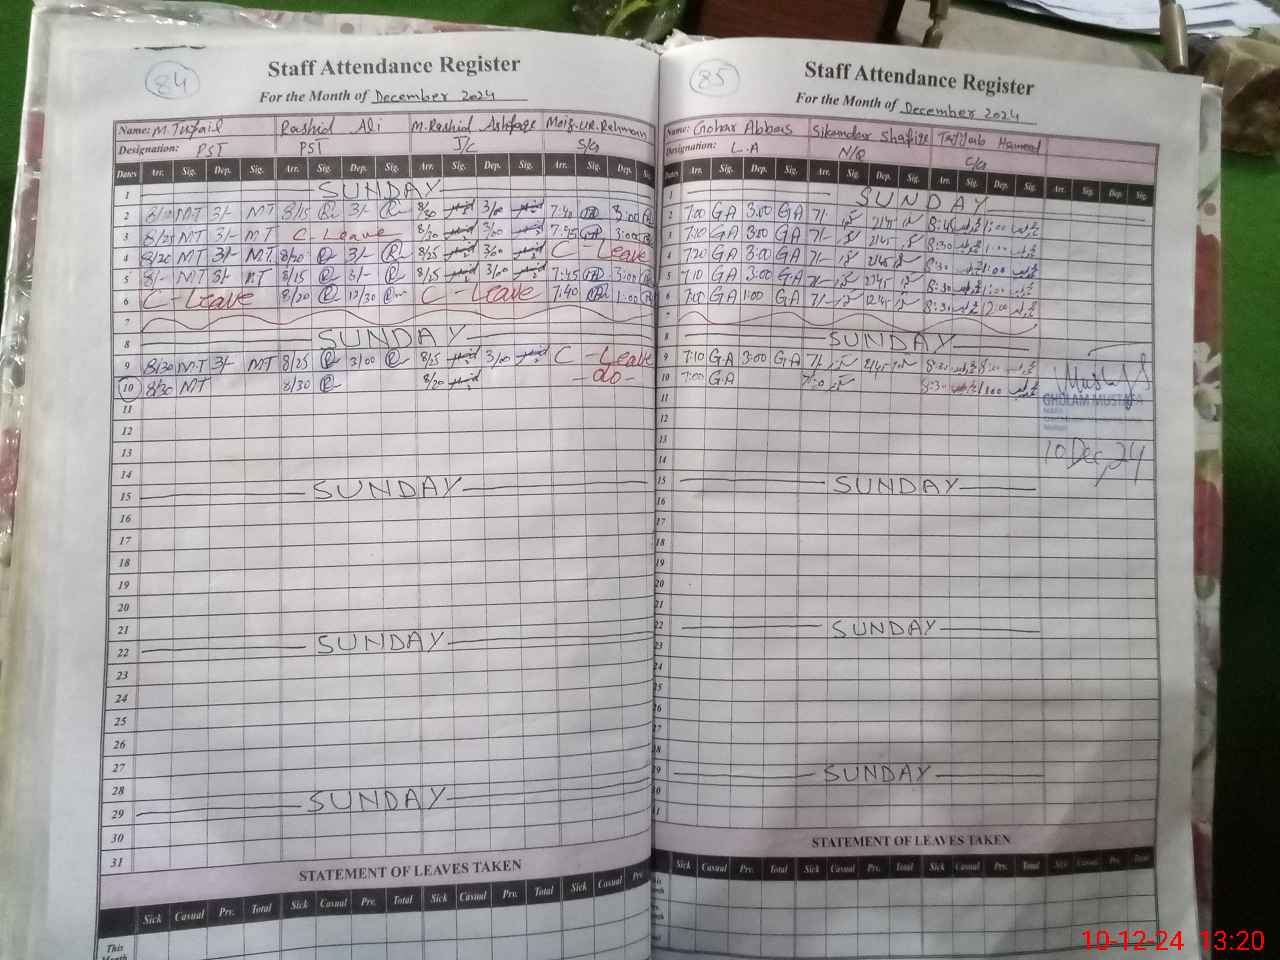 84
Staff Attendance Register
For the Month of December 2024
Name: M. Tufail Rashid Ali M. Rashid Ashfaqe Moiz.UR.Rehman
Designation: PST PST J/C S/G
Dates Arr. Sig. Dep. Sig. Arr. Sig. Dep. Sig. Arr. Sig. Dep. Sig. Arr. Sig. Dep. Sig.
1 SUNDAY
2 8/20 MT 3/- MT 8/15 3/- 8/30 3/00 7:40 3:00
3 8/25 MT 3/- MT C-Leave 8/30 3/00 7:45 3:00
4 8/20 MT 3/- MT 8/20 3/- 8/25 3/00 C Leave
5 8/- MT 3/- MT 8/15 3/- 8/25 3/00 7:45 3:00
6 C-Leave 8/20 12/30 C-Leave 7:40 1:00
7
8 SUNDAY
9 8/30 MT 3/- MT 8/25 3/00 8/25 3/00 C-Leave
10 8/30 MT 8/30 8/20 -do-
11
12
13
14
15 SUNDAY
16
17
18
19
20
21
22 SUNDAY
23
24
25
26
27
28
29 SUNDAY
30
31
STATEMENT OF LEAVES TAKEN
Sick Casual Prv. Total Sick Casual Prv. Total Sick Casual Prv. Total Sick Casual Prv.
This
Month
85
Staff Attendance Register
For the Month of December 2024
Name: Gohar Abbas Sikandar Shafiqe Hameed
Designation: L.A N/Q C/G
Arr. Sig. Dep. Sig. Arr. Sig. Dep. Sig. Arr. Sig. Dep. Sig. Arr. Sig. Dep. Sig.
1 SUNDAY
2 7:00 GA 3:00 GA 7/- 2/45 8:45 1:00
3 7:10 GA 3:00 GA 7/- 2/45 8:30 1:00
4 7:20 GA 3:00 GA 7/- 2/45 8:30 1:00
5 7:10 GA 3:00 GA 7/- 2/45 8:30 1:00
6 7:00 GA 1:00 GA 7/- 12/45 8:30 12:00
7
8 SUNDAY
9 7:10 GA 3:00 GA 7/- 2/45 8:30
10 7:00 GA 8:30 1:00
11
12
13
14
15 SUNDAY
16
17
18
19
20
21
22 SUNDAY
23
24
25
26
27
28
29 SUNDAY
30
31
GHOLAM MUSTAFA
10 Dec, 24
STATEMENT OF LEAVES TAKEN
Sick Casual Prv. Total Sick Casual Prv. Total Sick Casual Prv. Total Sick Casual Prv. Total
10-12-24 13:20